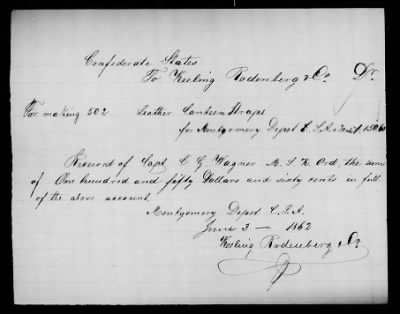 Confederate States
To Keeling Rodenberg & Co. Dr.
For making 502 Leather Canteen Straps
for Montgomery Depot C.S.A. a 30cts 150.60
Received of Capt. C G Wagner M.S.K. Ord, the sum
of One hundred and fifty Dollars and sixty cents in full
of the above account.
Montgomery Depot C.S.A.
June 3 — 1862
Keeling Rodenberg & Co